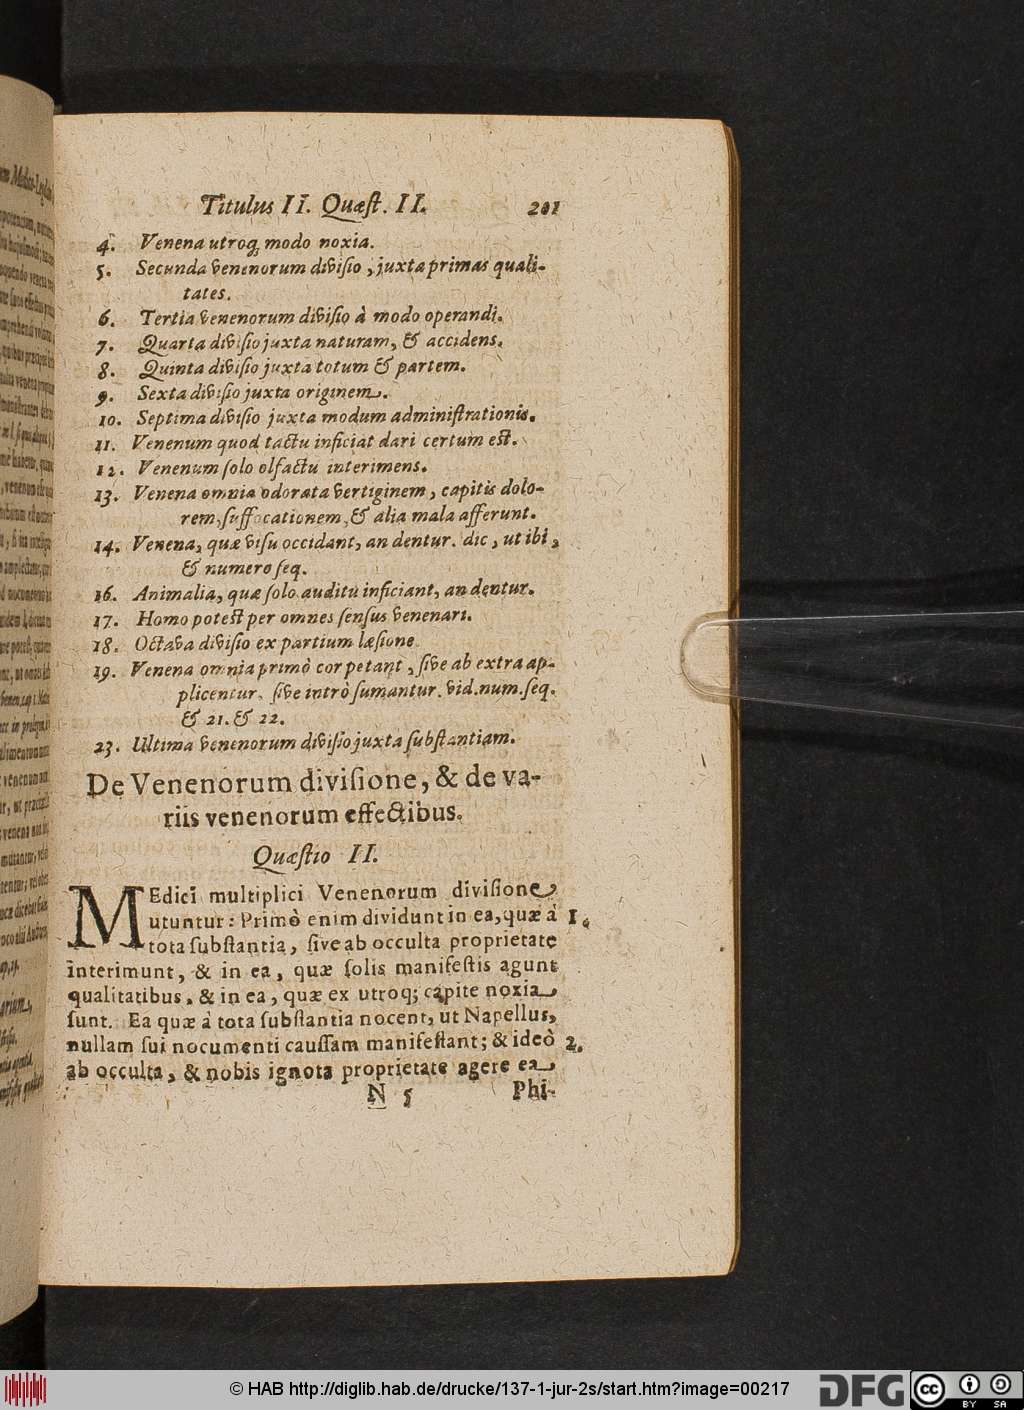 Titulus II. Quæst. II. 201
4. Venena utroq; modo noxia.
5. Secunda venenorum divisio, juxta primas quali-
tates.
6. Tertia venenorum divisio à modo operandi.
7. Quarta divisio juxta naturam, & accidens.
8. Quinta divisio juxta totum & partem.
9. Sexta divisio juxta originem.
10. Septima divisio juxta modum administrationis.
11. Venenum quod tactu inficiat dari certum est.
12. Venenum solo olfactu interimens.
13. Venena omnia odorata vertiginem, capitis dolo-
rem, suffocationem, & alia mala afferunt.
14. Venena, quæ visu occidant, an dentur. dic, ut ibi,
& numero seq.
16. Animalia, quæ solo auditu inficiant, an dentur.
17. Homo potest per omnes sensus venenari.
18. Octava divisio ex partium læsione
19. Venena omnia primò cor petant, sive ab extra ap-
plicentur, sive intrò sumantur. vid. num. seq.
& 21. & 22.
23. Ultima venenorum divisio juxta substantiam.
De Venenorum divisione, & de va-
riis venenorum effectibus.
Quæstio II.
MEdici multiplici Venenorum divisione
utuntur: Primò enim dividunt in ea, quæ à 1.
tota substantia, sive ab occulta proprietate
interimunt, & in ea, quæ solis manifestis agunt
qualitatibus, & in ea, quæ ex utroq; capite noxia
sunt. Ea quæ à tota substantia nocent, ut Napellus,
nullam sui nocumenti caussam manifestant; & ideò 2.
ab occulta, & nobis ignota proprietate agere ea
N 5 Phi-
© HAB http://diglib.hab.de/drucke/137-1-jur-2s/start.htm?image=00217 DFG cc BY SA